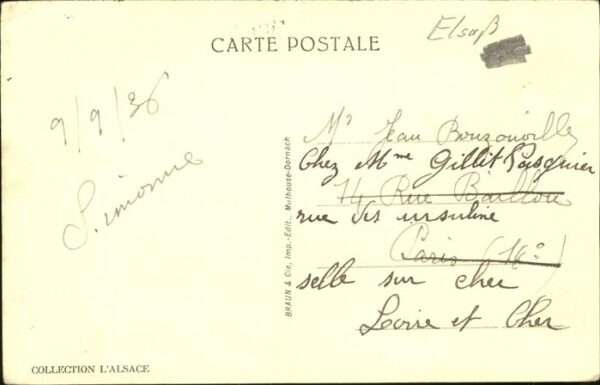 Elsaß
CARTE POSTALE
9/9/36
Simonne
BRAUN & Cie, Imp.-Edit., Mulhouse-Dornach
Mr Jean Bouzonville
Chez Mme Gillit Pasquier
14 Rue Baillou
rue des ursuline
Paris (14e)
selle sur cher
Loire et Cher
COLLECTION L'ALSACE